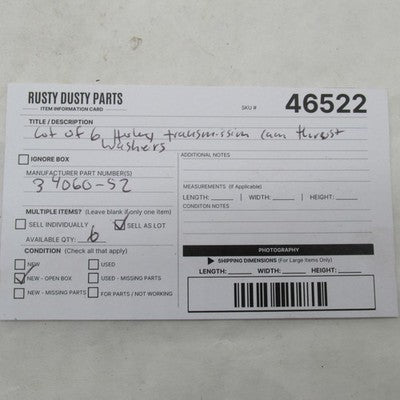 RUSTY DUSTY PARTS
ITEM INFORMATION CARD
SKU # 46522
TITLE / DESCRIPTION
Lot of 6 Harley transmission cam thrust
washers
IGNORE BOX
MANUFACTURER PART NUMBER(S)
34060-52
MULTIPLE ITEMS? (Leave blank if only one item)
SELL INDIVIDUALLY SELL AS LOT
AVAILABLE QTY: 6
CONDITION (Check all that apply)
NEW USED
NEW - OPEN BOX USED - MISSING PARTS
NEW - MISSING PARTS FOR PARTS / NOT WORKING
ADDITIONAL NOTES
MEASUREMENTS (If Applicable)
LENGTH: | WIDTH: | HEIGHT:
CONDITON NOTES
PHOTOGRAPHY
SHIPPING DIMENSIONS (For Large Items Only)
LENGTH: WIDTH: HEIGHT: